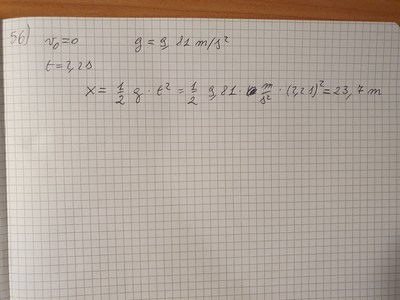 56) v₀=0 g = 9,81 m/s²
t = 2,2s
x = 1/2 g · t² = 1/2 9,81 · m/s² · (2,2s)² = 23,7 m